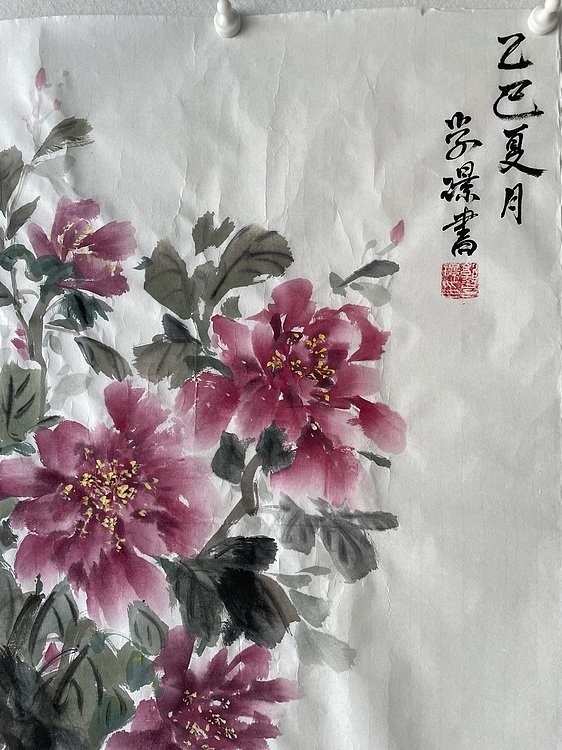 乙巳夏月
学璟書